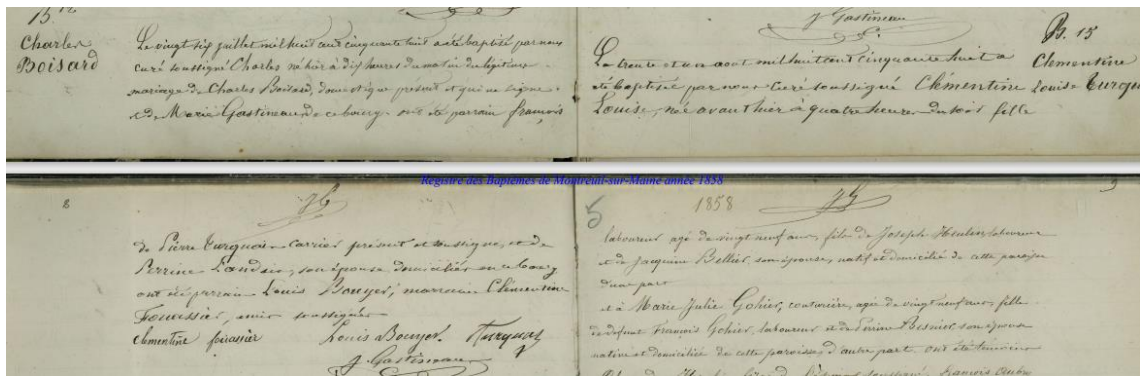 15.
Charles
Boisard
Le vingt six juillet mil huit cent cinquante huit a été baptisé par nous
curé soussigné Charles né hier à dix heures du matin du légitime
mariage de Charles Boisard, domestique présent et qui ne signe
et de Marie Gastineau de ce bourg ont été parrain françois
J Gastineau
B. 15
Clementine
Louise Turqu
Le trente et un aout mil huit cent cinquante huit a
été baptisée par nous Curé soussigné Clémentine
Louise, née avant hier à quatre heures du soir fille
Registre des Baptêmes de Montreuil-sur-Maine année 1858
8
de Pierre Turquois Carrier présent et soussigné, et de
Perrine Landais, son épouse, domiciliés en ce bourg
ont été parrain Louis Bouyer, marraine Clémentine
Fouassier, soussignés
Clementine fouassier Louis Bouyer. Turquois
J. Gastineau
5
1858
9
laboureur agé de vingt neuf ans, fils de Joseph laboureur
et de Jacquine Bellier, son épouse, natif et domicilié de cette paroisse
d'une part
et à Marie Julie Gohier, couturière, agée de vingt neuf ans, fille
de défunt François Gohier, laboureur et de Perrine Besnier, son épouse
native et domiciliée de cette paroisse, d'autre part. ont été témoins